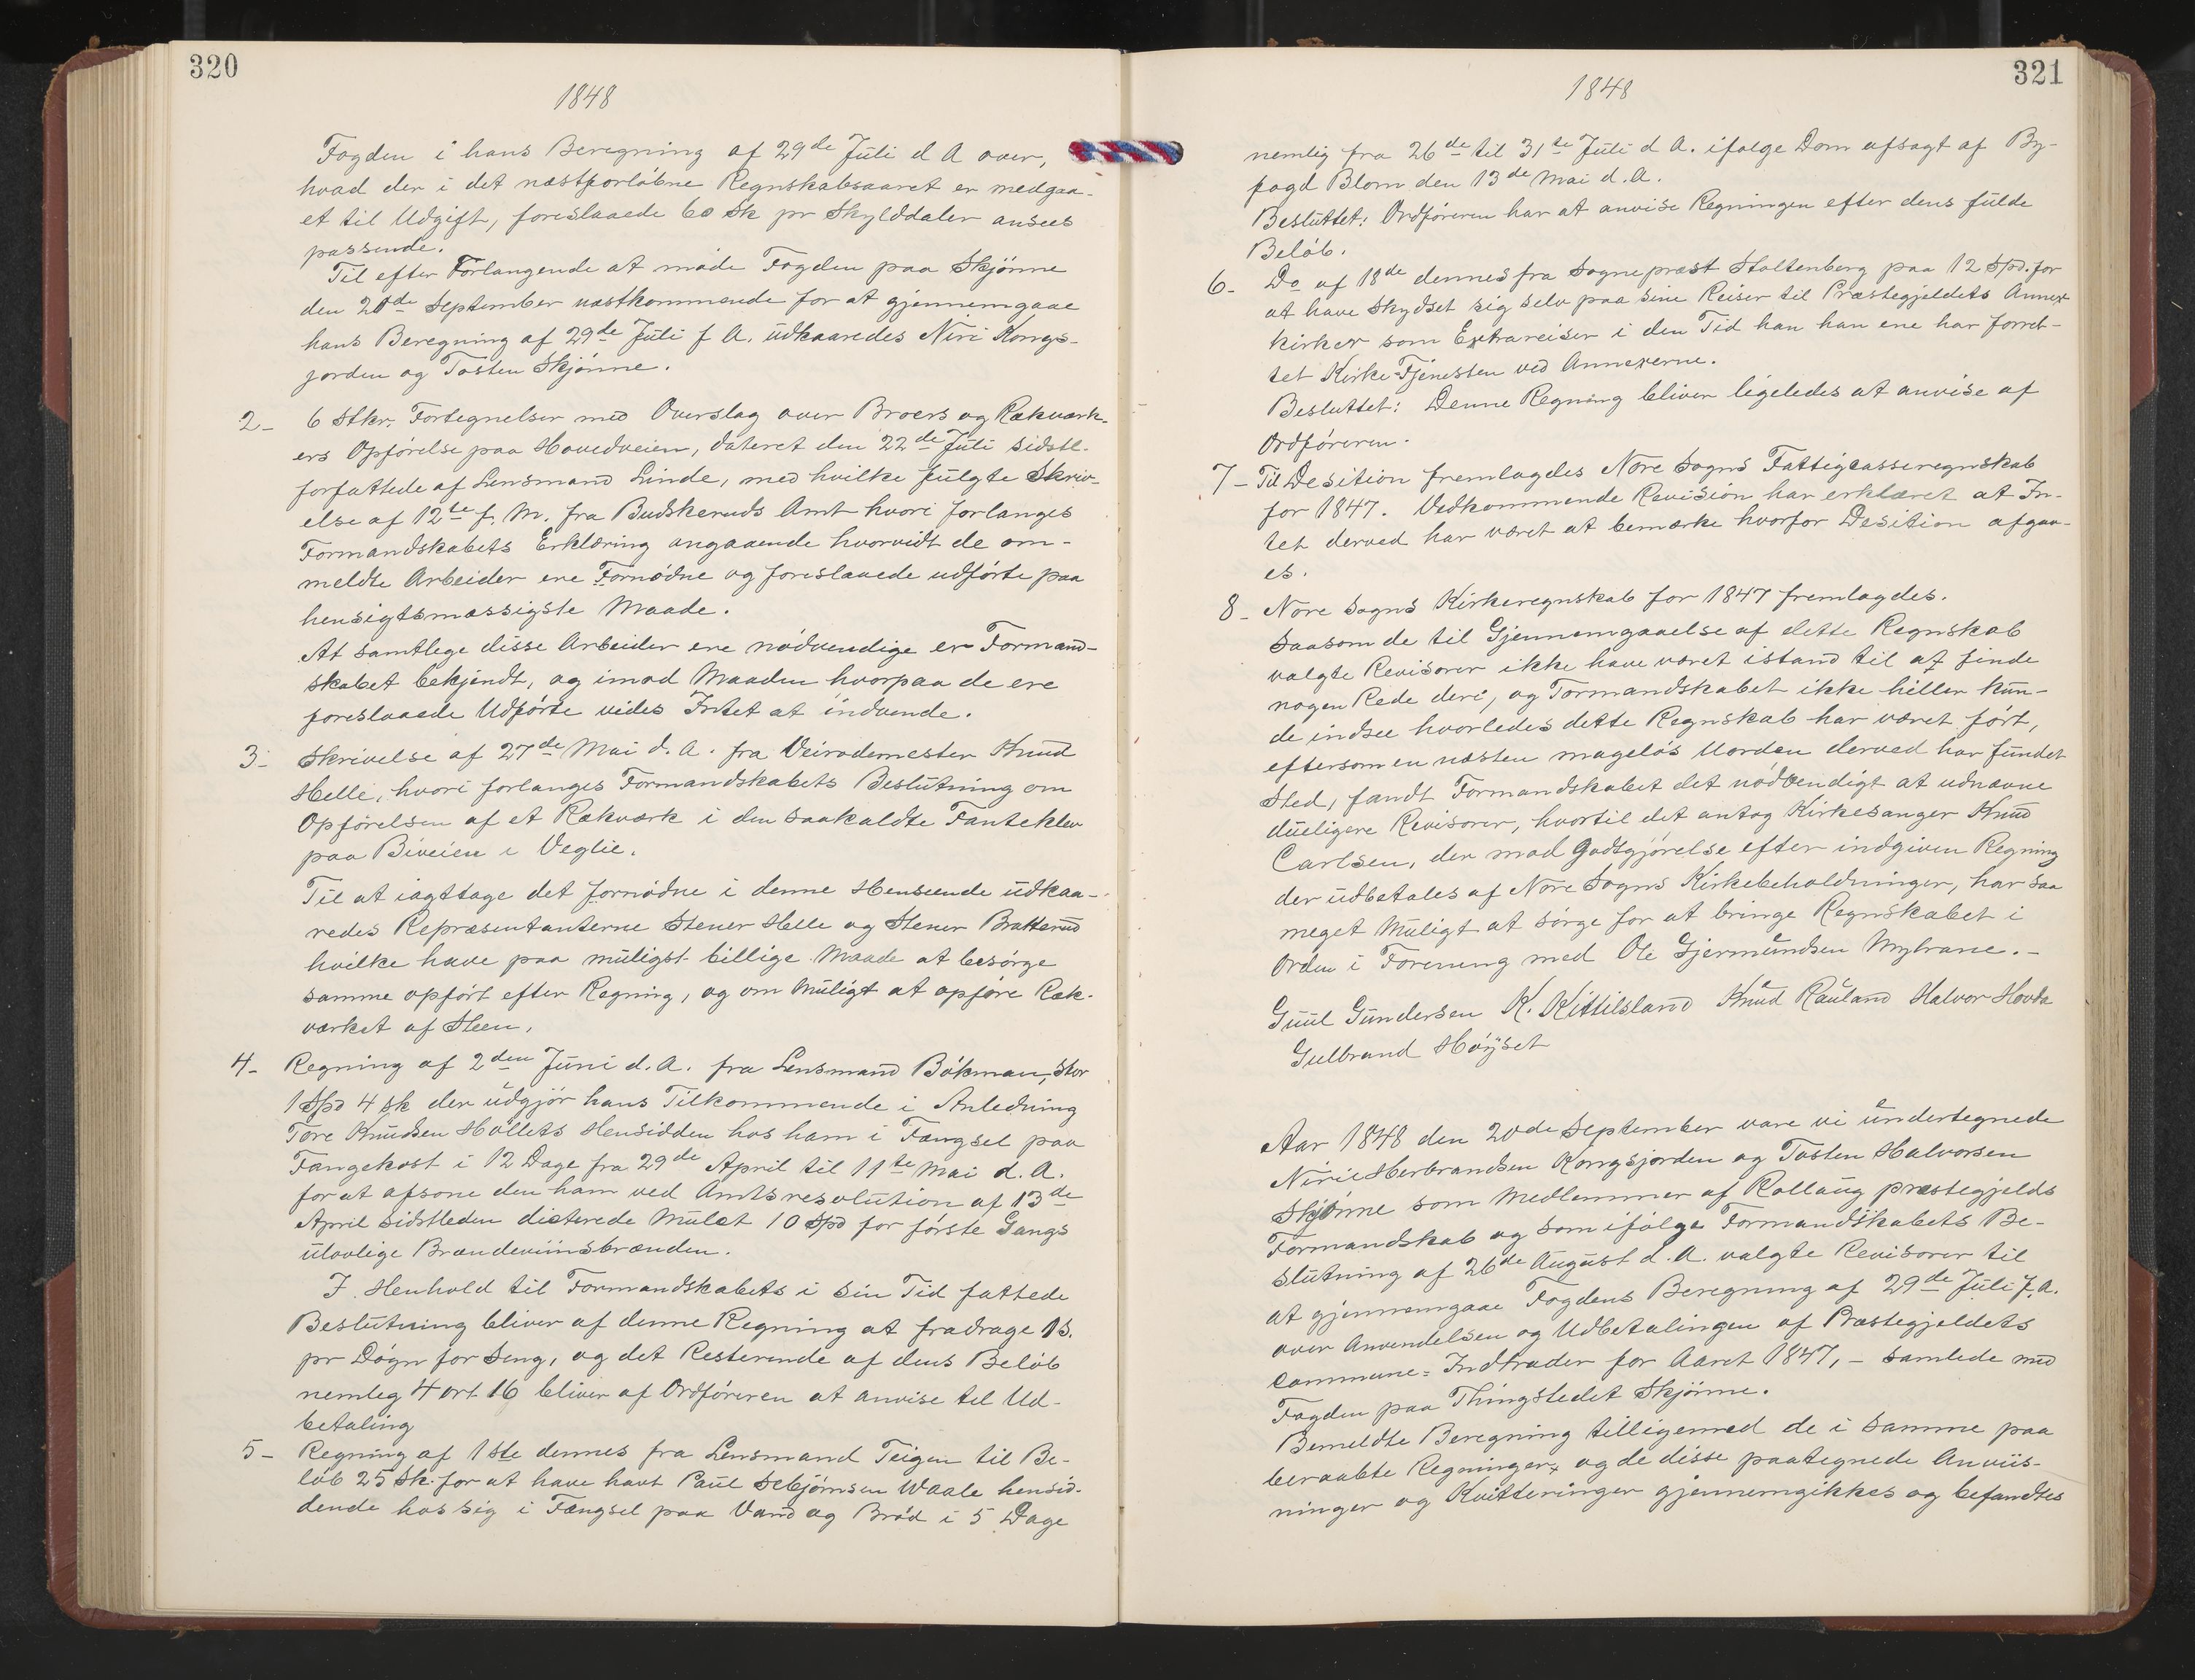 320
1848
Fogden i hans Beregning af 29de Juli d A over,
hvad der i det næstforløbne Regnskabsaaret er medgaa-
et til Udgift, foreslaaede 60 Sk pr Skylddaler ansees
passende.
Til efter Forlangende at møde Fogden paa Skjønne
den 20de September næstkommende for at gjennemgaae
hans Beregning af 29de Juli f A. udkaaredes Niri Kongs-
jorden og Tosten Skjønne.
2- 6 Stkr. Fortegnelser med Overslag over Broers og Rækværk-
ers Opførelse paa Hovedveien, dateret den 22de Juli sidstl.
forfattede af Lensmand Linde, med hvilke fulgte Skriv-
else af 12te f. M. fra Budskeruds Amt hvori forlanges
Formandskabets Erklæring angaaende hvorvidt de om-
meldte Arbeider ere Fornødne og foreslaaede udførte paa
hensigtsmæssigste Maade.
At samtlege disse Arbeider ere nødvendige er Formand-
skabet bekjendt, og imod Maaden hvorpaa de ere
foreslaaede Udførte vides Intet at indvende.
3- Skrivelse af 27de Mai d. A. fra Veirodemester Knud
Helle, hvori forlanges Formandskabets Beslutning om
Opførelsen af et Rækværk i den saakaldte Fanteklev
paa Biveien i Veglie.
Til at iagttage det fornødne i denne Henseende udkaa-
redes Repræsentanterne Stener Helle og Stener Bratterud
hvilke have paa muligst billige Maade at besørge
samme opført efter Regning, og om Muligt at opføre Ræk-
værket af Steen.
4- Regning af 2den Juni d. A. fra Lensmand Bøkman, stor
1 Spd 4 sk der udgjør hans Tilkommende i Anledning
Tore Knudsen Høllets Hensidden hos ham i Fængsel paa
Fangekost i 12 Dage fra 29de April til 11te Mai d. A.
for at afsone den ham ved Amtsresolution af 13de
April sidstleden dicterede Mulct 10 Spd for første Gangs
ulovlige Brændeviinsbrænden.
I. Henhold til Formandskabets i sin Tid fattede
Beslutning bliver af denne Regning at fradrage 1 s.
pr Døgn for Seng, og det Resterende af dens Beløb
nemleg 4 ort 16 bliver af Ordføreren at anvise til Ud-
betaling
5- Regning af 1ste dennes fra Lensmand Teigen til Be-
løb 25 Sk. for at have havt Paul Sebjørnsen Waale hensid-
dende hos sig i Fængsel paa Vand og Brød i 5 Dage
321
1848
nemlig fra 26de til 31te Juli d A. ifølge Dom afsagt af By-
fogd Blom den 13de Mai d. A.
Besluttet: Ordføreren har at anvise Regningen efter dens fulde
Beløb.
6- Do af 18de dennes fra Sognepræst Stoltenberg paa 12 Spd. for
at have Skydset sig selv paa sine Reiser til Præstegjeldets Annex
kirker som Extrareiser i den Tid han han ene har forret-
tet Kirke-Tjenesten ved Annexerne.
Besluttet: Denne Regning bliver ligeledes at anvise af
Ordføreren.
7- Til Desition fremlagdes Nore Sogns Fattigcasseregnskab
for 1847. Vedkommende Revision har erklæret at In-
tet derved har været at bemærke hvorfor Desition afgav-
es.
8- Nore Sogns Kirkeregnskab for 1847 fremlagdes.
Saasom de til Gjennemgaaelse af dette Regnskab
valgte Revisorer ikke have været istand til at finde
nogen Rede deri, og Formandskabet ikke heller kun-
de indsee hvorledes dette Regnskab har været ført,
eftersom en næsten mageløs Uorden derved har fundet
Sted, fandt Formandskabet det nødvendigt at udnævne
dueligere Revisorer, hvortil det antog Kirkesanger Knud
Carlsen, der mod Godtgjørelse efter indgiven Regning
der udbetales af Nore Sogns Kirkebeholdninger, har saa
meget Muligt at sørge for at bringe Regnskabet i
Orden i Forening med Ole Gjermundsen Mytrane.-
Guul Gundersen K. Kittilsland Knud Rauland Halvor Hovda
Gulbrand Høyset
Aar 1848 den 20de September vare vi undertegnede
Nirie Herbrandsen Kongsjorden og Tosten Halvorsen
Skjønne som Medlemmer af Rollaug præstegjelds
Formandskab og som ifølge Formandskabets Be-
slutning af 26de August d. A. valgte Revisorer til
at gjennemgaae Fogdens Beregning af 29de Juli f. A.
over Anvendelsen og Udbetalingen af Præstegjeldets
commune= Indtræder for Aaret 1847, - samlede med
Fogden paa Thingstedet Skjønne.
Bemeldte Beregning tilligemed de i samme paa
beraabte Regninger, og de disse paategnede Anviis-
ninger og Kvitteringer gjennemgikkes og befandtes